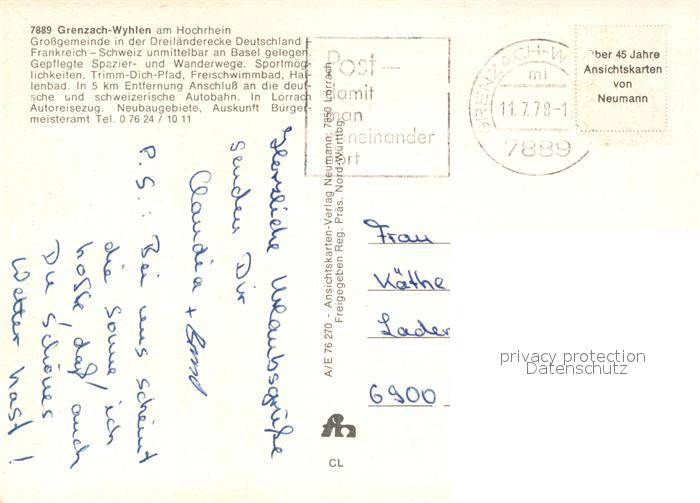 7889 Grenzach-Wyhlen am Hochrhein
Großgemeinde in der Dreiländerecke Deutschland
Frankreich – Schweiz unmittelbar an Basel gelegen.
Gepflegte Spazier- und Wanderwege. Sportmög-
lichkeiten, Trimm-Dich-Pfad, Freischwimmbad, Hal-
lenbad. In 5 km Entfernung Anschluß an die deut-
sche und schweizerische Autobahn. In Lörrach
Autoreisezug. Neubaugebiete, Auskunft Bürger-
meisteramt Tel. 0 76 24 / 10 11
Post –
damit
man
voneinander
hört
GRENZACH-W
mi
11.7.78-1
7889
über 45 Jahre
Ansichtskarten
von
Neumann
Herzliche Urlaubsgrüße
senden Dir
Claudia +
P.S.: Bei uns scheint
die Sonne, ich
hoffe, daß auch
Du schönes
Wetter hast!
A/E 76 270 - Ansichtskarten-Verlag Neumann, 7850 Lörrach
Freigegeben Reg. Präs. Nord-Württbg.
Frau
Käthe
Lader
6900
CL
privacy protection
Datenschutz